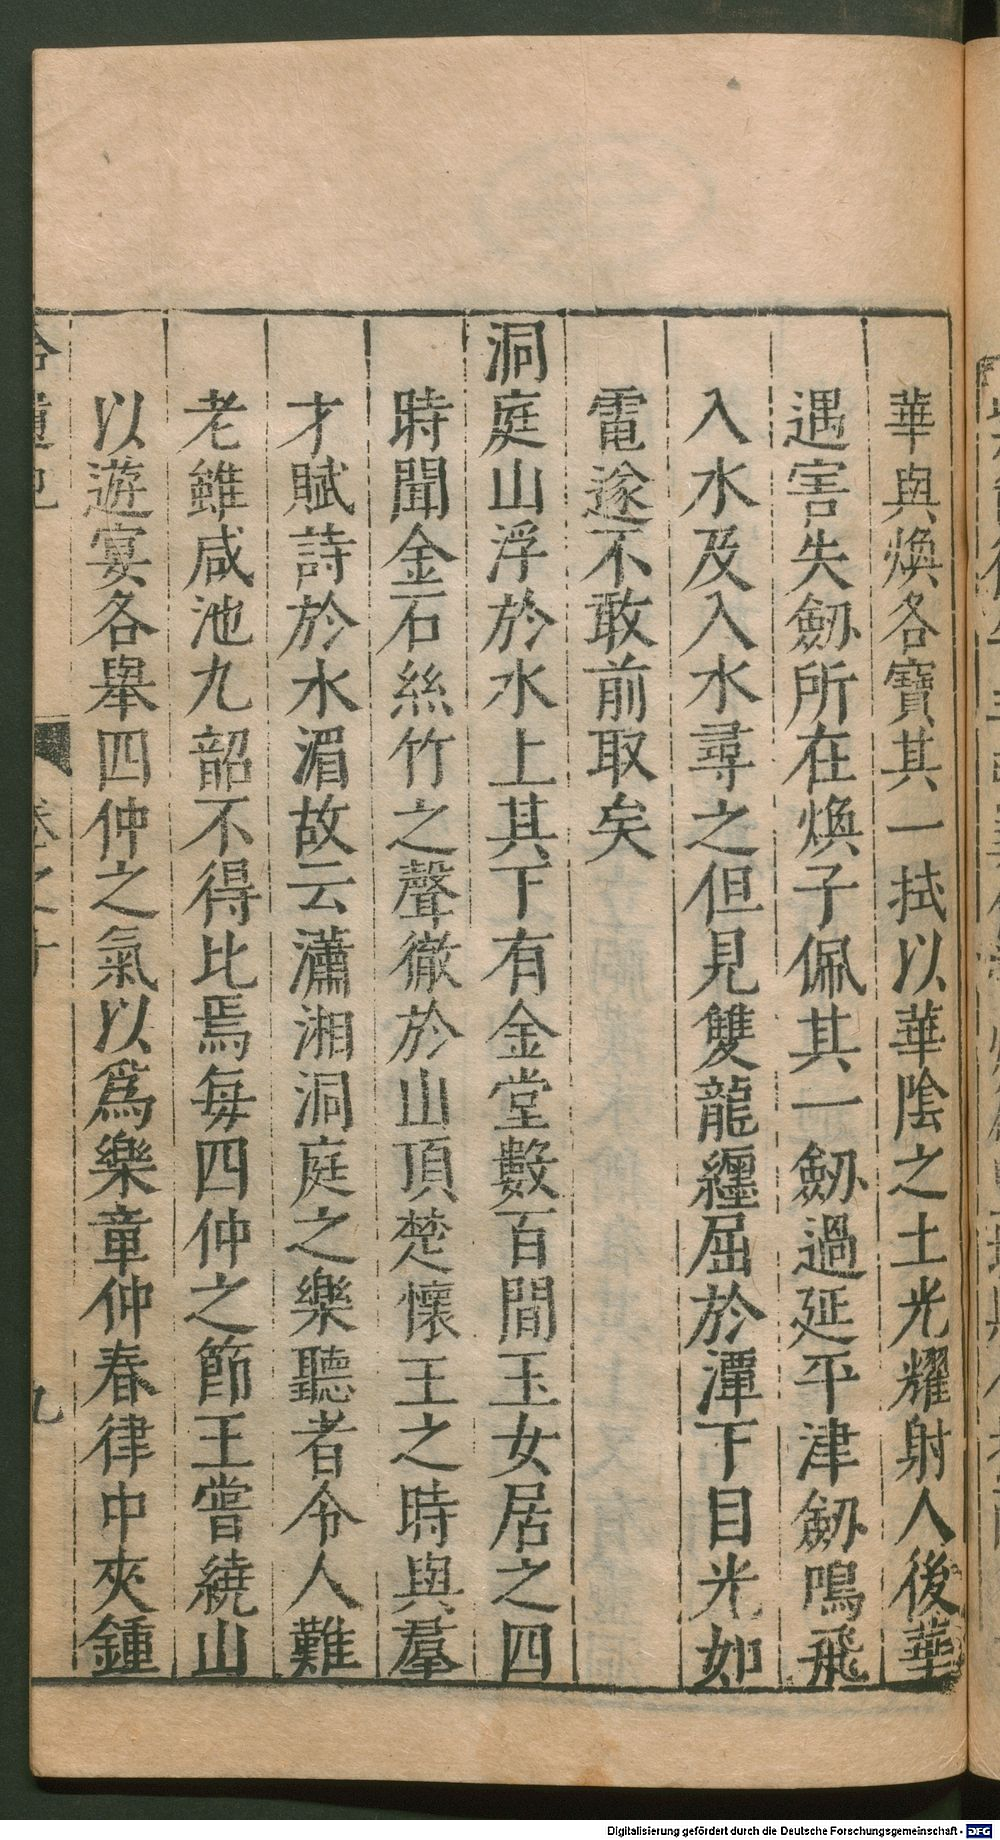 華與煥各寶其一拭以華陰之土光耀射人後華
遇害失劒所在煥子佩其一劒過延平津劒鳴飛
入水及入水尋之但見雙龍纒屈於潭下目光如
電遂不敢前取矣
洞庭山浮於水上其下有金堂數百間玉女居之四
時聞金石絲竹之聲徹於山頂楚懷王之時與羣
才賦詩於水湄故云瀟湘洞庭之樂聽者令人難
老雖咸池九韶不得比焉每四仲之節王嘗繞山
以遊宴各舉四仲之氣以爲樂章仲春律中夾鍾
卷之十
九
Digitalisierung gefördert durch die Deutsche Forschungsgemeinschaft - DFG